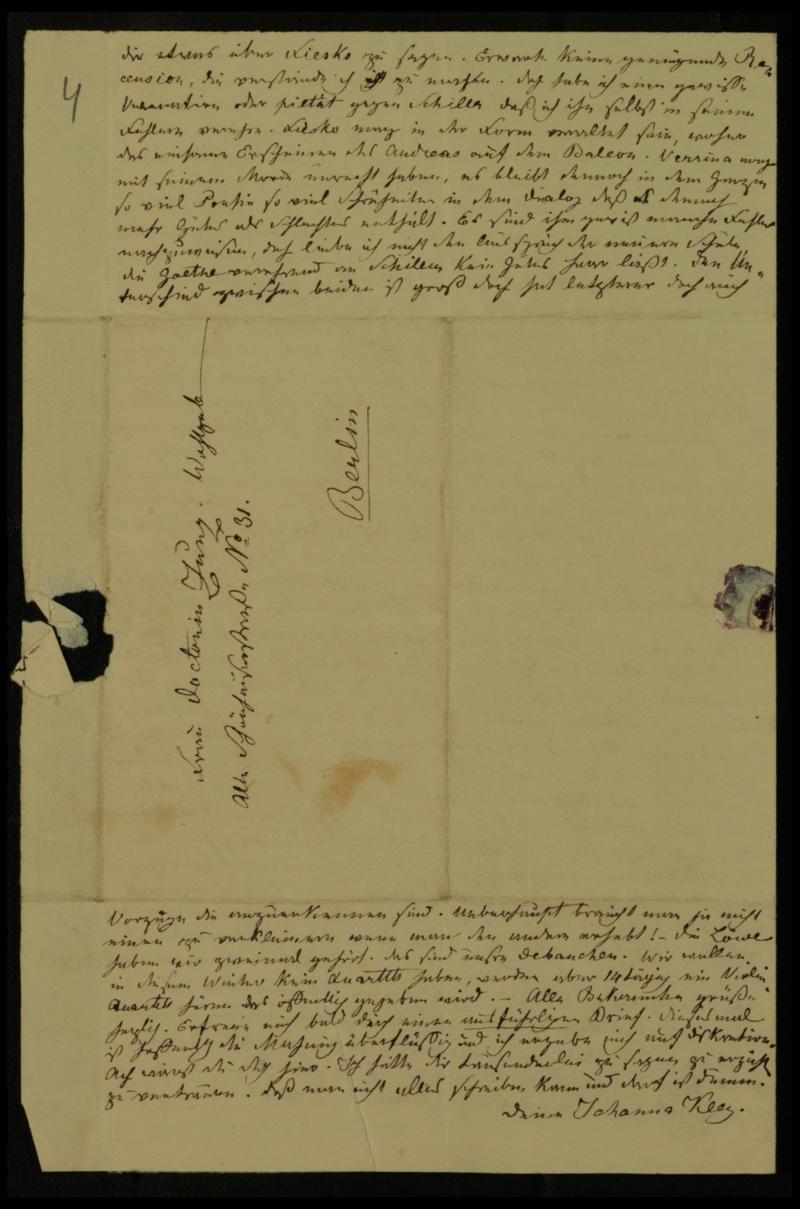 4
dir etwas über Fiesko zu sagen. Erwarte keine genügende Re-
cension, die verstünde ich zu machen. doch habe ich eine gewisse
Veneration oder pietät gegen Schiller daß ich ihn selbst in seinen
Fehlern verehre. Fiesko mag in der Form veraltet sein, woher
das einsame Erscheinen des Andreas auf dem Balcon. Verrina mag
mit seinem Morde unrecht haben, es bleibt dennoch in dem Ganzen
so viel Poesie so viel Schönheiten in dem Dialog daß es dennoch
mehr Gutes als Schlechtes enthält. Es sind ihm gewiß manche Fehler
nachzuweisen, doch liebe ich nicht den Ausspruch der neuern Schule,
die Goethe verehrend an Schillern kein gutes Haar läßt. Der Un-
terschied zwischen beiden ist groß doch hat letzterer doch auch
Frau Doctorin Jung. Wohlgeb
Alte Schönhauserstraße No 31.
Berlin
Vorzüge die anzuerkennen sind. Ueberhaupt braucht man ja nicht
einen zu verkleinern wenn man den andern erhebt! – Die Löwe
haben wir zweimal gehört. das sind unsre Debauchen. Wir wollen
in diesem Winter kein Quartett haben, werden aber 14tägig ein Violin
Quartett hören das öffentlich gegeben wird. – Alle Bekannten grüßen
herzlich. Erfreue mich bald durch einen ausführlichen Brief. diesesmal
ist hoffentlich die Mahnung überflüßig und ich vergebe auch auf diskretion.
Ach wärest du doch hier. Ich hätte dir tausenderlei zu sagen zu erzähl
zu vertrauen. daß man nicht alles schreiben kann und darf ist dumm.
Deine Johanna Kley.